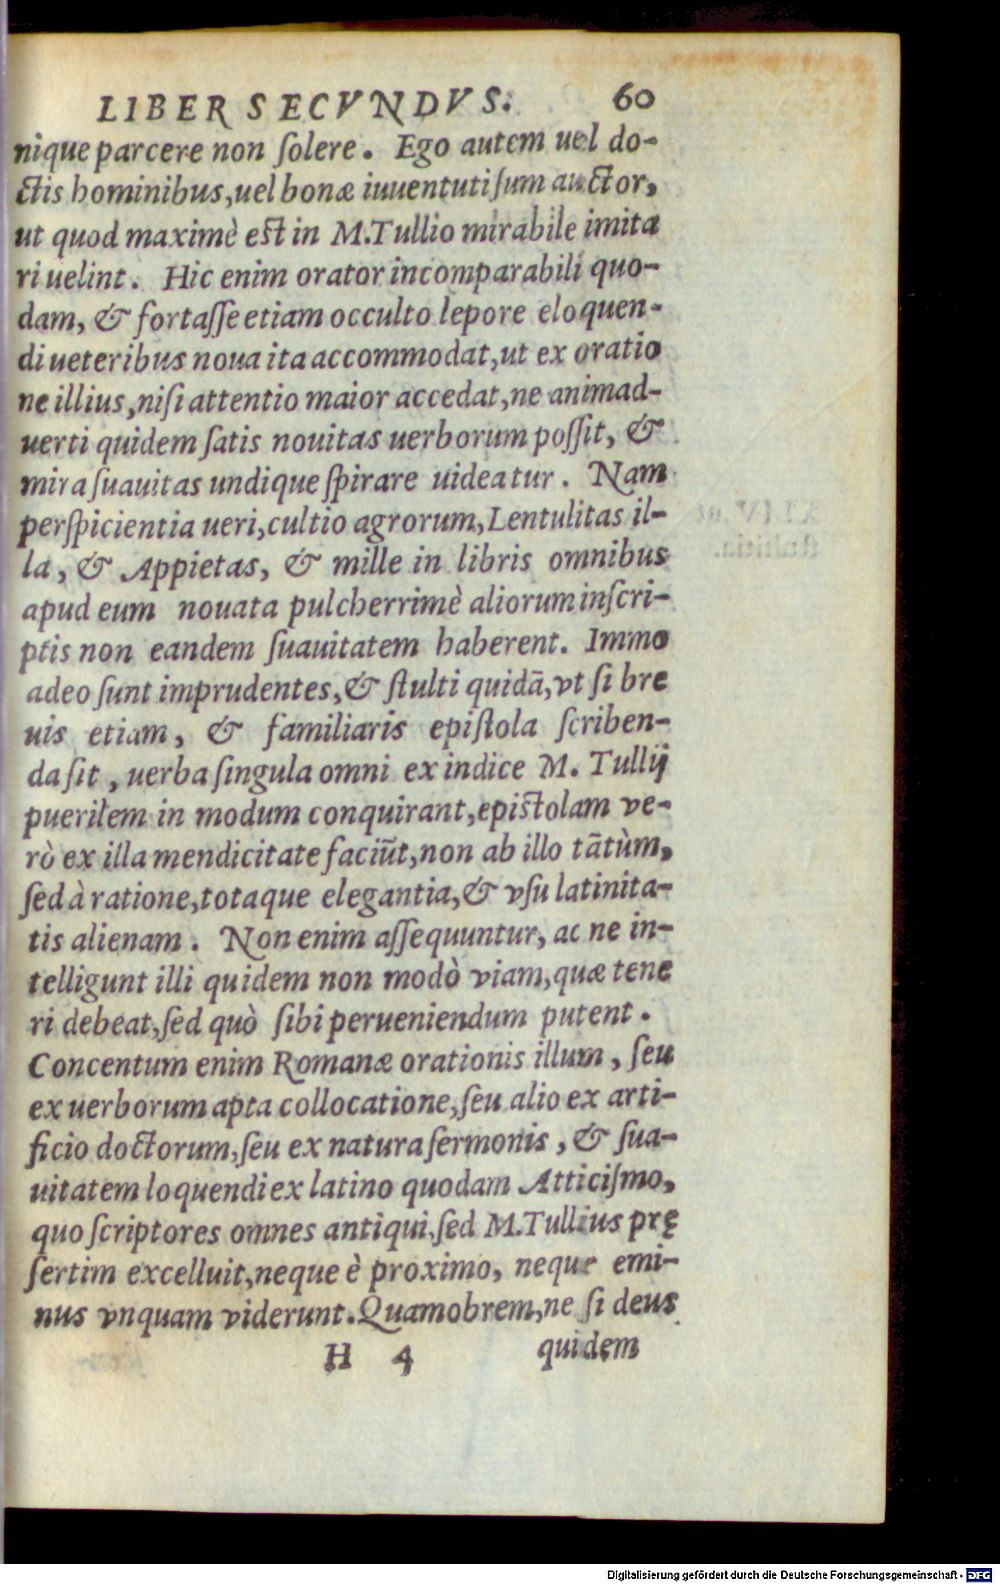 LIBER SECVNDVS. 60
nique parcere non ſolere. Ego autem uel do-
ctis hominibus, uel bonæ iuuentuti ſum auctor,
ut quod maximè est in M. Tullio mirabile imita
ri uelint. Hic enim orator incomparabili quo-
dam, & fortaſſe etiam occulto lepore eloquen-
di ueteribus noua ita accommodat, ut ex oratio
ne illius, niſi attentio maior accedat, ne animad-
uerti quidem ſatis nouitas uerborum poſſit, &
mira ſuauitas undique ſpirare uideatur. Nam
perſpicientia ueri, cultio agrorum, Lentulitas il-
la, & Appietas, & mille in libris omnibus
apud eum nouata pulcherrimè aliorum inſcri-
ptis non eandem ſuauitatem haberent. Immo
adeo ſunt imprudentes, & ſtulti quidā, vt ſi bre
uis etiam, & familiaris epiſtola ſcriben-
da ſit, uerba ſingula omni ex indice M. Tullij
puerilem in modum conquirant, epistolam ve-
rò ex illa mendicitate faciūt, non ab illo tātùm,
ſed à ratione, totaque elegantia, & vſu latinita-
tis alienam. Non enim aſſequuntur, ac ne in-
telligunt illi quidem non modò viam, quæ tene
ri debeat, ſed quò ſibi perueniendum putent.
Concentum enim Romanæ orationis illum, ſeu
ex uerborum apta collocatione, ſeu alio ex arti-
ficio doctorum, ſeu ex natura ſermonis, & ſua-
uitatem loquendi ex latino quodam Atticiſmo,
quo ſcriptores omnes antiqui, ſed M. Tullius prę
ſertim excelluit, neque è proximo, neque emi-
nus vnquam viderunt. Quamobrem, ne ſi deus
H 4 quidem
Digitalisierung gefördert durch die Deutsche Forschungsgemeinschaft - DFG